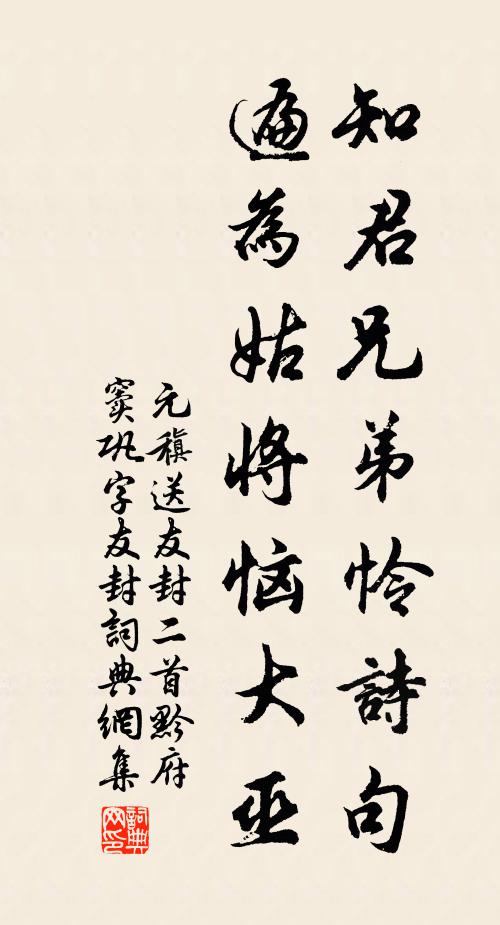 知君兄弟怜詩句
遍為姑将恼大巫
元稹送友封二首黔府
窦巩字友封詞典網集
詞典
网印